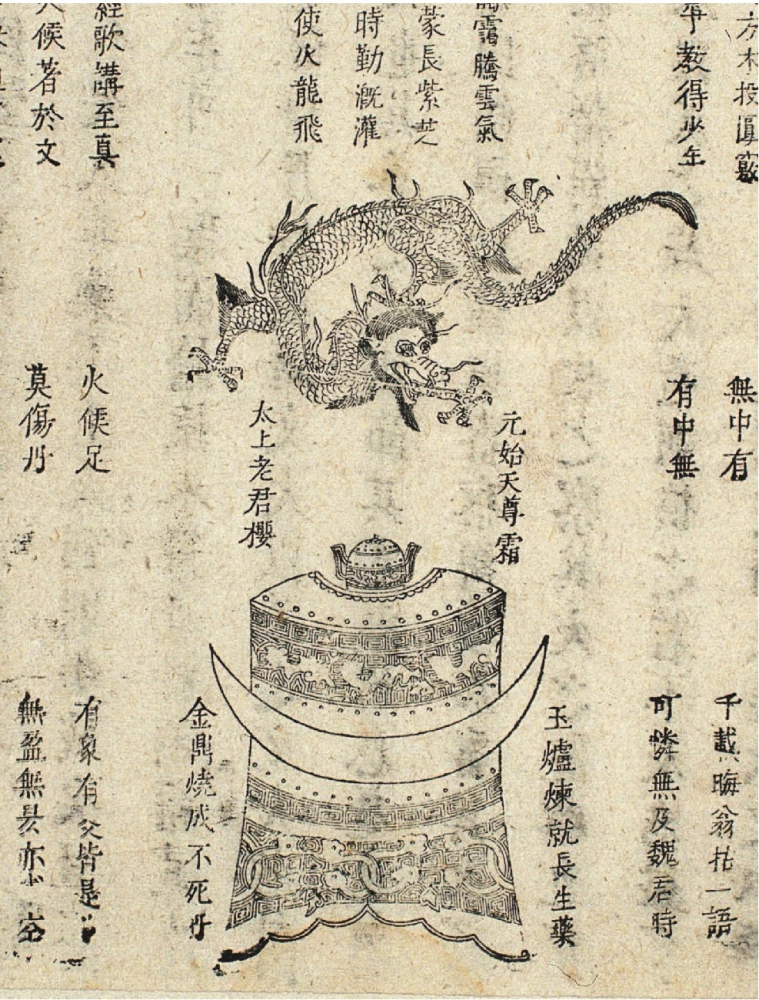 方木投圓竅
爭教得少年
騰雲氣
蒙長紫芝
時勤溉灌
使火龍飛
經歌講至真
火候著於文
無中有
有中無
元始天尊霜
太上老君櫻
火候足
莫傷丹
千載晦翁拈一語
可憐無及魏君時
玉爐煉就長生藥
金鼎燒成不死丹
有象有爻皆是
無盈無昃亦空